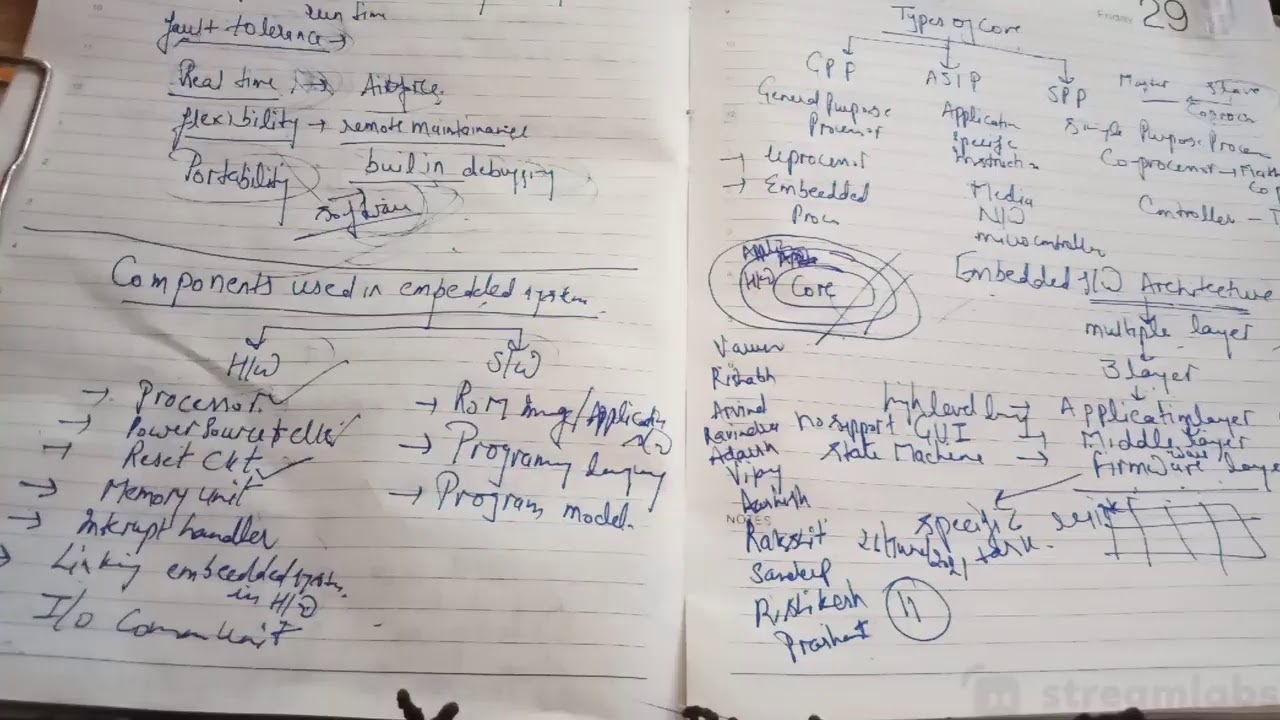 run time
fault tolerence →
Real time → Airforce.
flexibility → remote maintainance
Portability
built in debugging
software
Components used in embedded system
H/W
S/W
→ Processor
→ Power Source &
→ Reset Ckt
→ Memory unit
→ Intrupt handler
→ Linking embedded system
in H/W
I/O Commun
→ ROM Image/Application
S/W
→ Programg languag
→ Program model.
Friday 29
Types of Core
GPP
ASIP
SPP
Master
Slave
Coproces
General Purpose
Processor
Application
Specific
Instruction
Single Purpose Proces
→ uprocessor
→ Embedded
Proces
Media
N/W
microcontroller
Co-processor → Math
Co
Controller -
Appli
H/W
Core
Embedded H/W Architecture
multiple layer
3 layer
high level lang → Application layer
No support GUI → Middle layer
ware
State Machine → firmware layer
specific
task
Varun
Rishabh
Arvind
Ravinder
Adarsh
Vijay
Aashish
NOTES
Rakshit
Sandeep
Rishikesh
Prashant
11
streamlabs